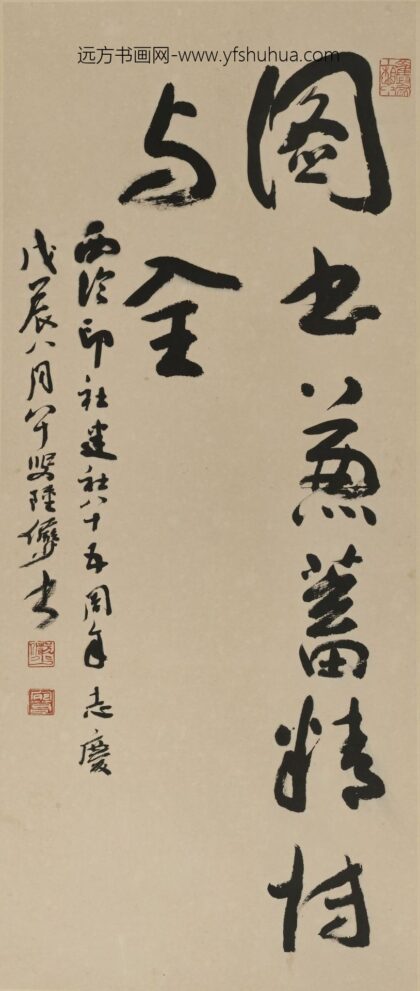 远方书画网-www.yfshuhua.com
圖书兼蓄精博
与全
西泠印社建社八十五周年志慶
戊辰八月八十叟陸儼少书